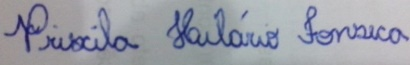 Priscila Hilário Fonseca